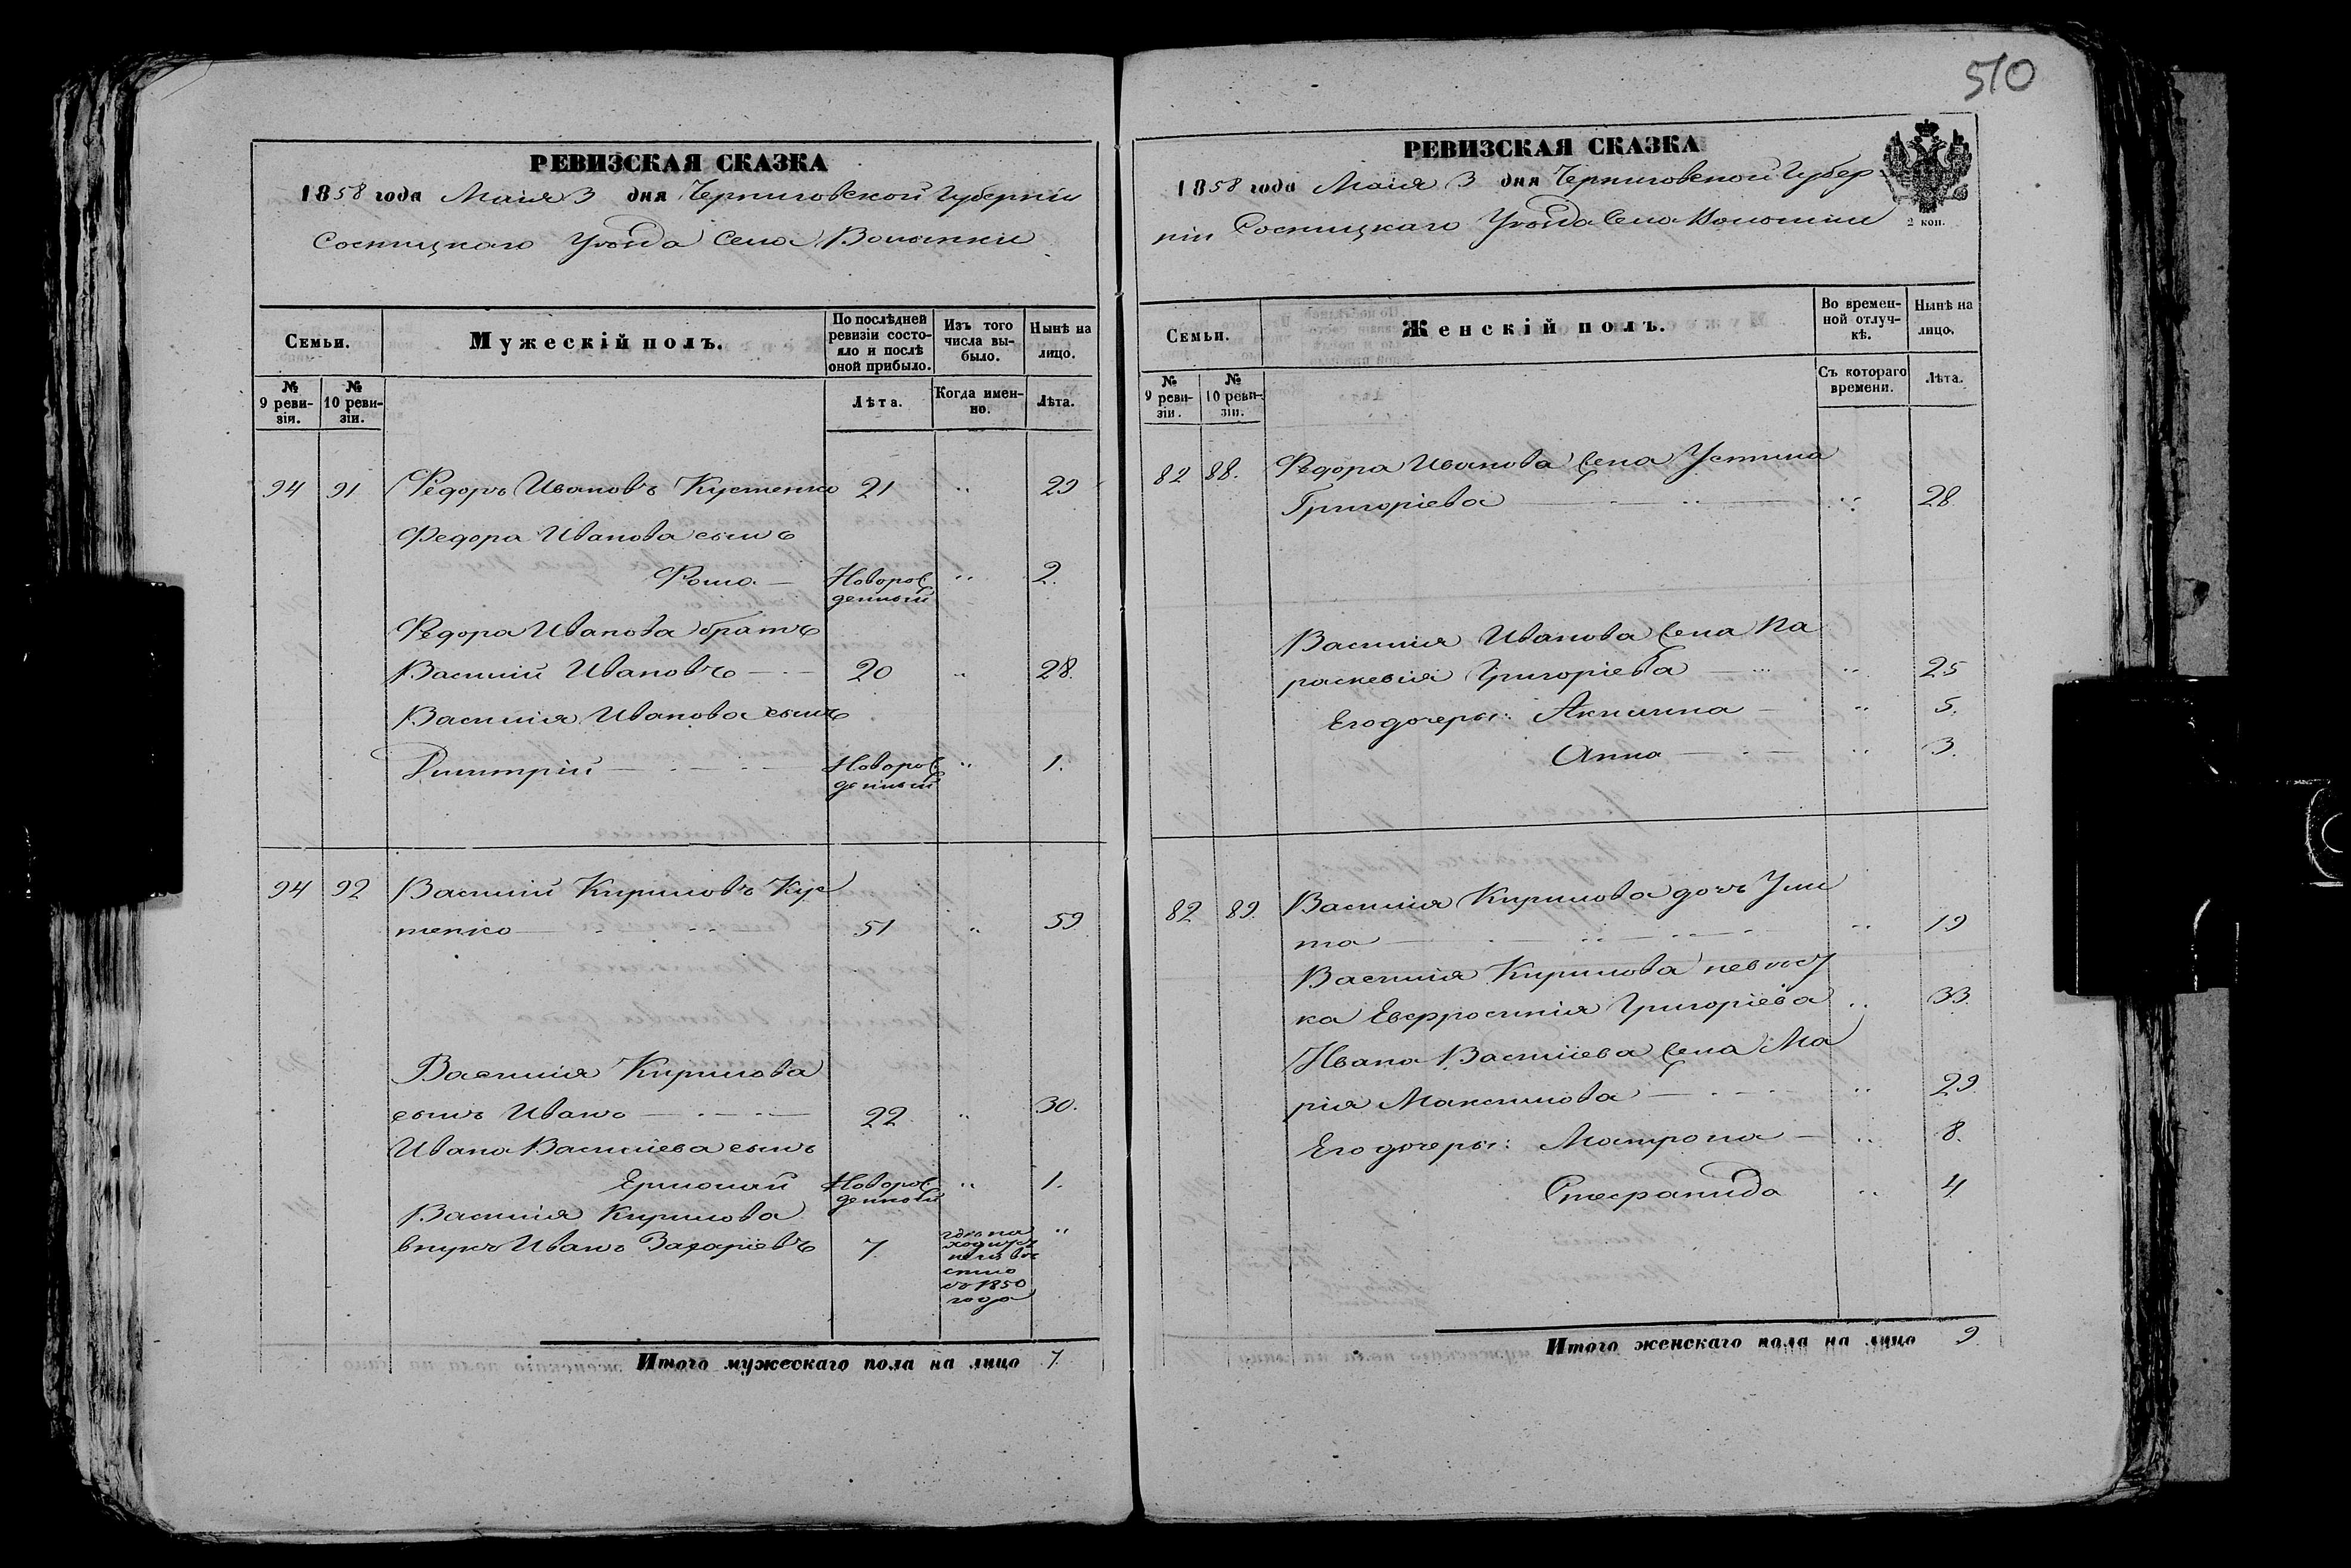 510
РЕВИЗСКАЯ СКАЗКА
1858 года Маія 3 дня Черниговской Губерніи
Сосницкаго Уѣзда Села Волынки
Семьи.
Мужескій полъ.
По послѣдней ревизіи состояло и послѣ оной прибыло.
Изъ того числа выбыло.
Нынѣ на лицо.
№ 9 ревизіи.
№ 10 ревизіи.
Лѣта.
Когда именно.
Лѣта.
94 91 Федоръ Ивановъ Кустенко 21 " 29
Федора Иванова сынъ
Фома — Новорож " 2.
денный
Федора Иванова братъ
Василий Ивановъ — 20 " 28.
Василия Иванова сынъ
Димитрій — Новорож " 1.
денный
94 92 Василий Кириловъ Кус
тенко — 51 " 59
Василия Кирилова
сынъ Иванъ — 22 " 30.
Ивана Василіева сынъ
Ермолай Новорож " 1.
денный
Василия Кирилова
внукъ Иванъ Захаріевъ 7. "
гдѣ на
ходится
неизвѣ
стно
съ 1850
года
Итого мужескаго пола на лицо 7.
РЕВИЗСКАЯ СКАЗКА
1858 года Маія 3 дня Черниговской Губер
ніи Сосницкаго Уѣзда Села Волынки
2 коп.
Семьи.
Женскій полъ.
Во временной отлучкѣ.
Нынѣ на лицо.
№ 9 ревизіи.
№ 10 ревизіи.
Съ котораго времени.
Лѣта.
82 88. Федора Иванова жена Устина
Григоріева — " 28.
Василия Иванова жена Па
раскевія Григоріева — " 25
Его дочеры: Акилина — " 5.
Анна — " 3.
82 89. Василия Кирилова дочь Ули
та — " 19
Василия Кирилова невѣст
ка Евфросинія Григоріева " 33.
Ивана Василіева жена Ма
рія Максимова — " 29.
Его дочеры: Матрона — " 8.
Стефанида " 4
Итого женскаго пола на лицо 9.